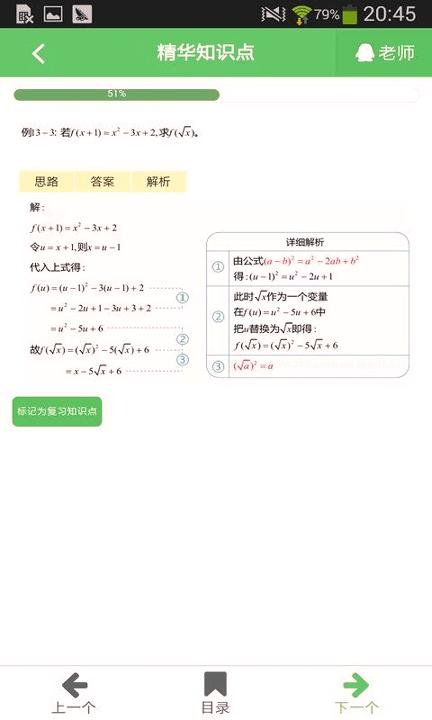 79% 20:45
精华知识点
老师
51%
例13-3: 若f(x+1)=x²-3x+2,求f(√x)。
思路 答案 解析
解:
f(x+1)=x²-3x+2
令u=x+1,则x=u-1
代入上式得:
f(u)=(u-1)²-3(u-1)+2
①
=u²-2u+1-3u+3+2
=u²-5u+6
②
故f(√x)=(√x)²-5(√x)+6
③
=x-5√x+6
详细解析
① 由公式(a-b)²=a²-2ab+b²
得:(u-1)²=u²-2u+1
② 此时√x作为一个变量
在f(u)=u²-5u+6中
把u替换为√x即得:
f(√x)=(√x)²-5√x+6
③ (√a)²=a
标记为复习知识点
上一个 目录 下一个